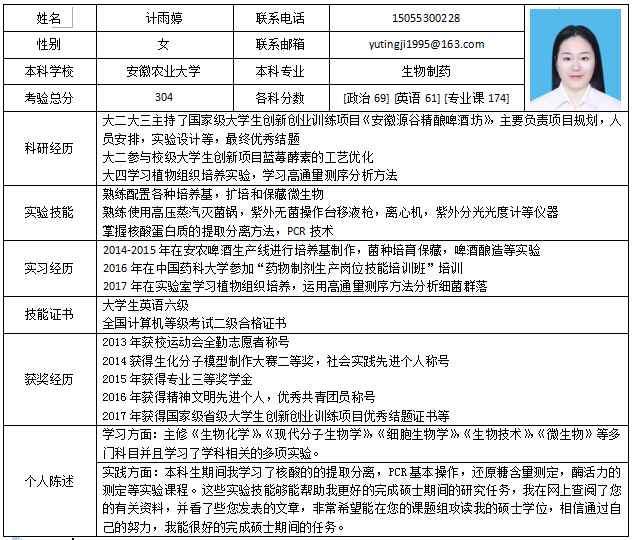 姓名 计雨婷 联系电话 15055300228
性别 女 联系邮箱 yutingji1995@163.com
本科学校 安徽农业大学 本科专业 生物制药
考验总分 304 各科分数 [政治 69] [英语 61] [专业课 174]
科研经历
大二大三主持了国家级大学生创新创业训练项目《安徽源谷精酿啤酒坊》，主要负责项目规划，人
员安排，实验设计等，最终优秀结题
大二参与校级大学生创新项目蓝莓酵素的工艺优化
大四学习植物组织培养实验，学习高通量测序分析方法
实验技能
熟练配置各种培养基，扩培和保藏微生物
熟练使用高压蒸汽灭菌锅，紫外无菌操作台移液枪，离心机，紫外分光光度计等仪器
掌握核酸蛋白质的提取分离方法，PCR 技术
实习经历
2014-2015 年在安农啤酒生产线进行培养基制作，菌种培育保藏，啤酒酿造等实验
2016 年在中国药科大学参加“药物制剂生产岗位技能培训班”培训
2017 年在实验室学习植物组织培养，运用高通量测序方法分析细菌群落
技能证书
大学生英语六级
全国计算机等级考试二级合格证书
获奖经历
2013 年获校运动会全勤志愿者称号
2014 获得生化分子模型制作大赛二等奖，社会实践先进个人称号
2015 年获得专业三等奖学金
2016 年获得精神文明先进个人，优秀共青团员称号
2017 年获得国家级省级大学生创新创业训练项目优秀结题证书等
个人陈述
学习方面：主修《生物化学》，《现代分子生物学》，《细胞生物学》，《生物技术》，《微生物》等多
门科目并且学习了学科相关的多项实验。
实践方面：本科生期间我学习了核酸的的提取分离，PCR 基本操作，还原糖含量测定，酶活力的
测定等实验课程。这些实验技能够能帮助我更好的完成硕士期间的研究任务，我在网上查阅了您
的有关资料，并看了些您发表的文章，非常希望能在您的课题组攻读我的硕士学位，相信通过自
己的努力，我能很好的完成硕士期间的任务。